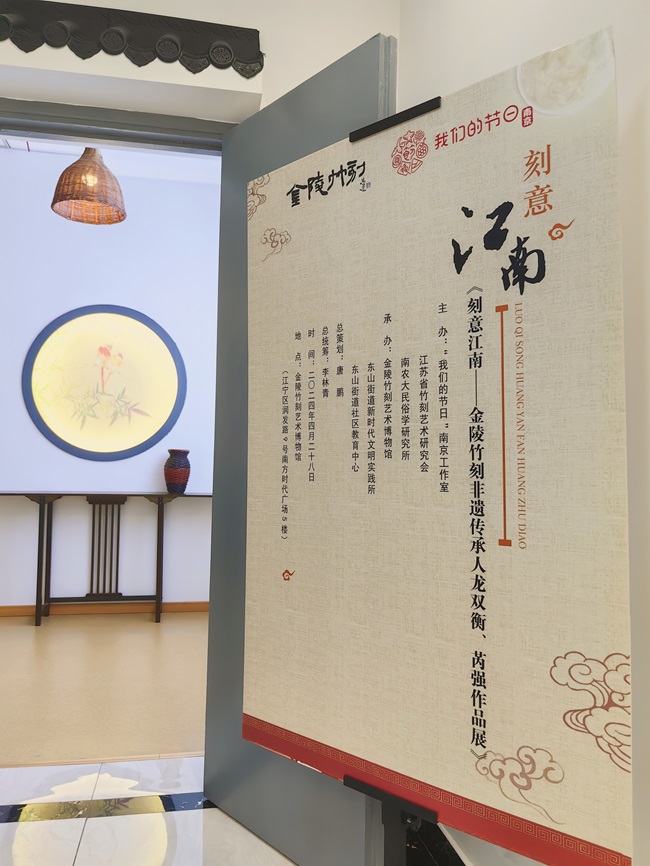 金陵竹刻
我们的节日
南京
刻意
江南
LUO QI SONG HUANG YAN FAN HUANG ZHU DIAO
《刻意江南——金陵竹刻非遗传承人龙双衡、芮强作品展》
主 办：“我们的节日”南京工作室
江苏省竹刻艺术研究会
南农大民俗学研究所
承 办：金陵竹刻艺术博物馆
东山街道新时代文明实践所
东山街道社区教育中心
总策划：唐 鹏
总统筹：李林青
时 间：二〇二四年四月二十八日
地 点：金陵竹刻艺术博物馆
（江宁区润发路9号南方时代广场5楼）